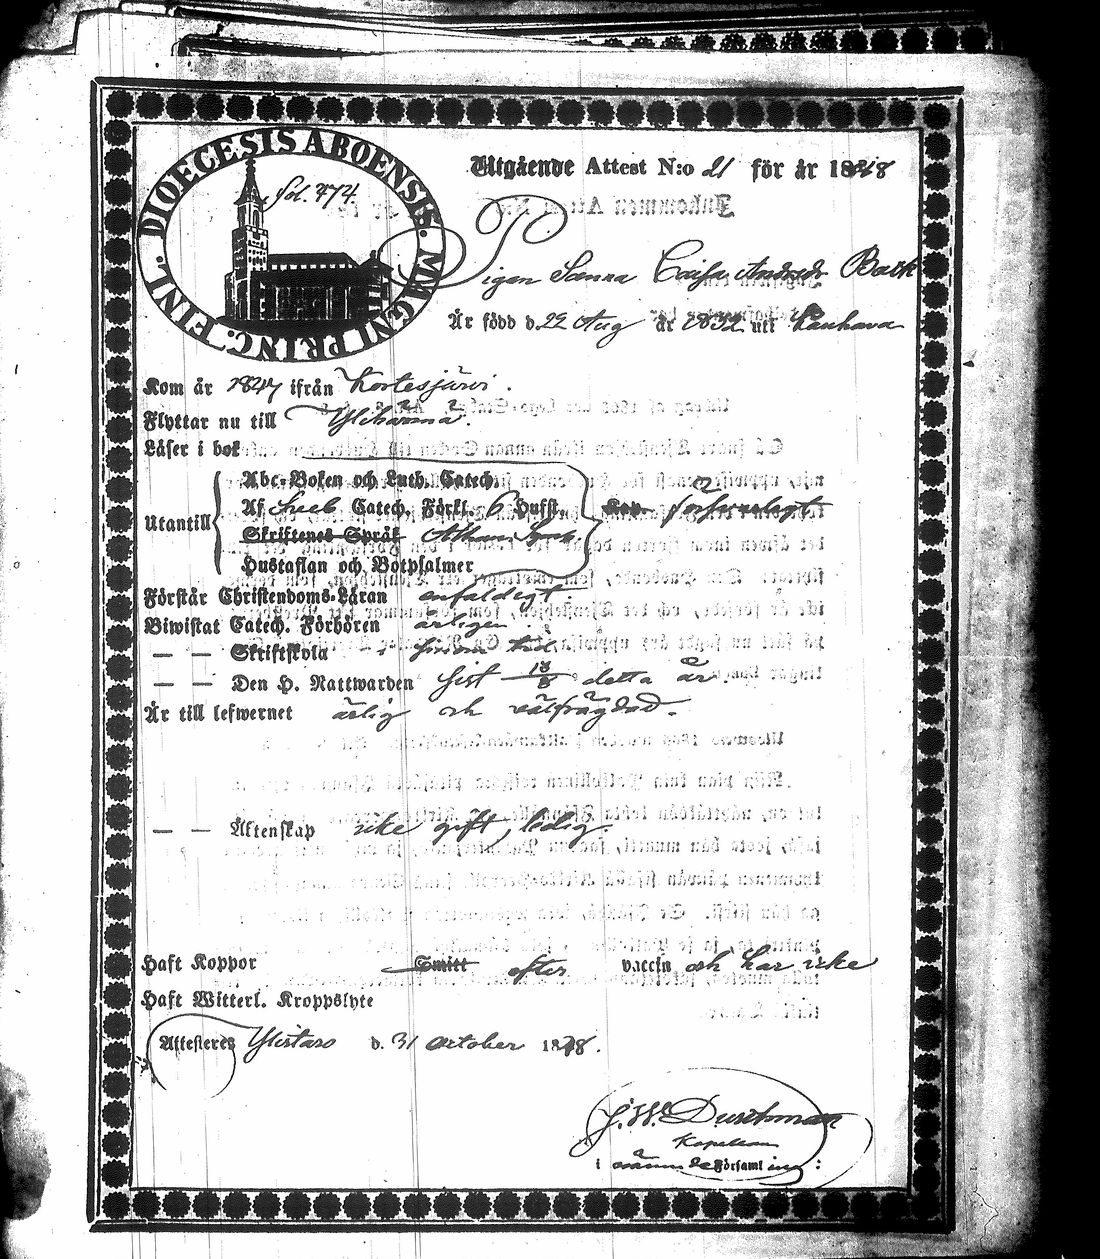 DIOECESIS ABOENSIS. MAGNI PRINC. FINL.
fol. 474.
Utgående Attest N:o 21 för år 1848
Pigan Sanna Caisa Andersdr Back
Är född d. 22 Aug år 1832 uti Lauhava
Kom år 1847 ifrån Kortesjärvi.
Flyttar nu till Ylihärmä.
Läser i bok
Abc-Boken och Luth. Catech.
Utantill
Af Sveb Catech. Förkl. 6 Hufst. Kap. försvarligt
Skriftenes Språk Athan. Symb.
Hustaflan och Botpsalmer
Förstår Christendoms-Läran enfaldigt.
Biwistat Catech. Förhören årligen
— — Skriftskola
— — Den H. Nattwarden sist 18/8 detta år.
Är till lefwernet ärlig och välfrägdad.
— — Äktenskap icke gift, ledig.
Haft Koppor Smitt efter vaccin och har icke
Haft Witterl. Kroppslyte
Attesteres Ylistaro d. 31 October 1848.
J. W. Durchman
Kapellan
i nämnde Församling: